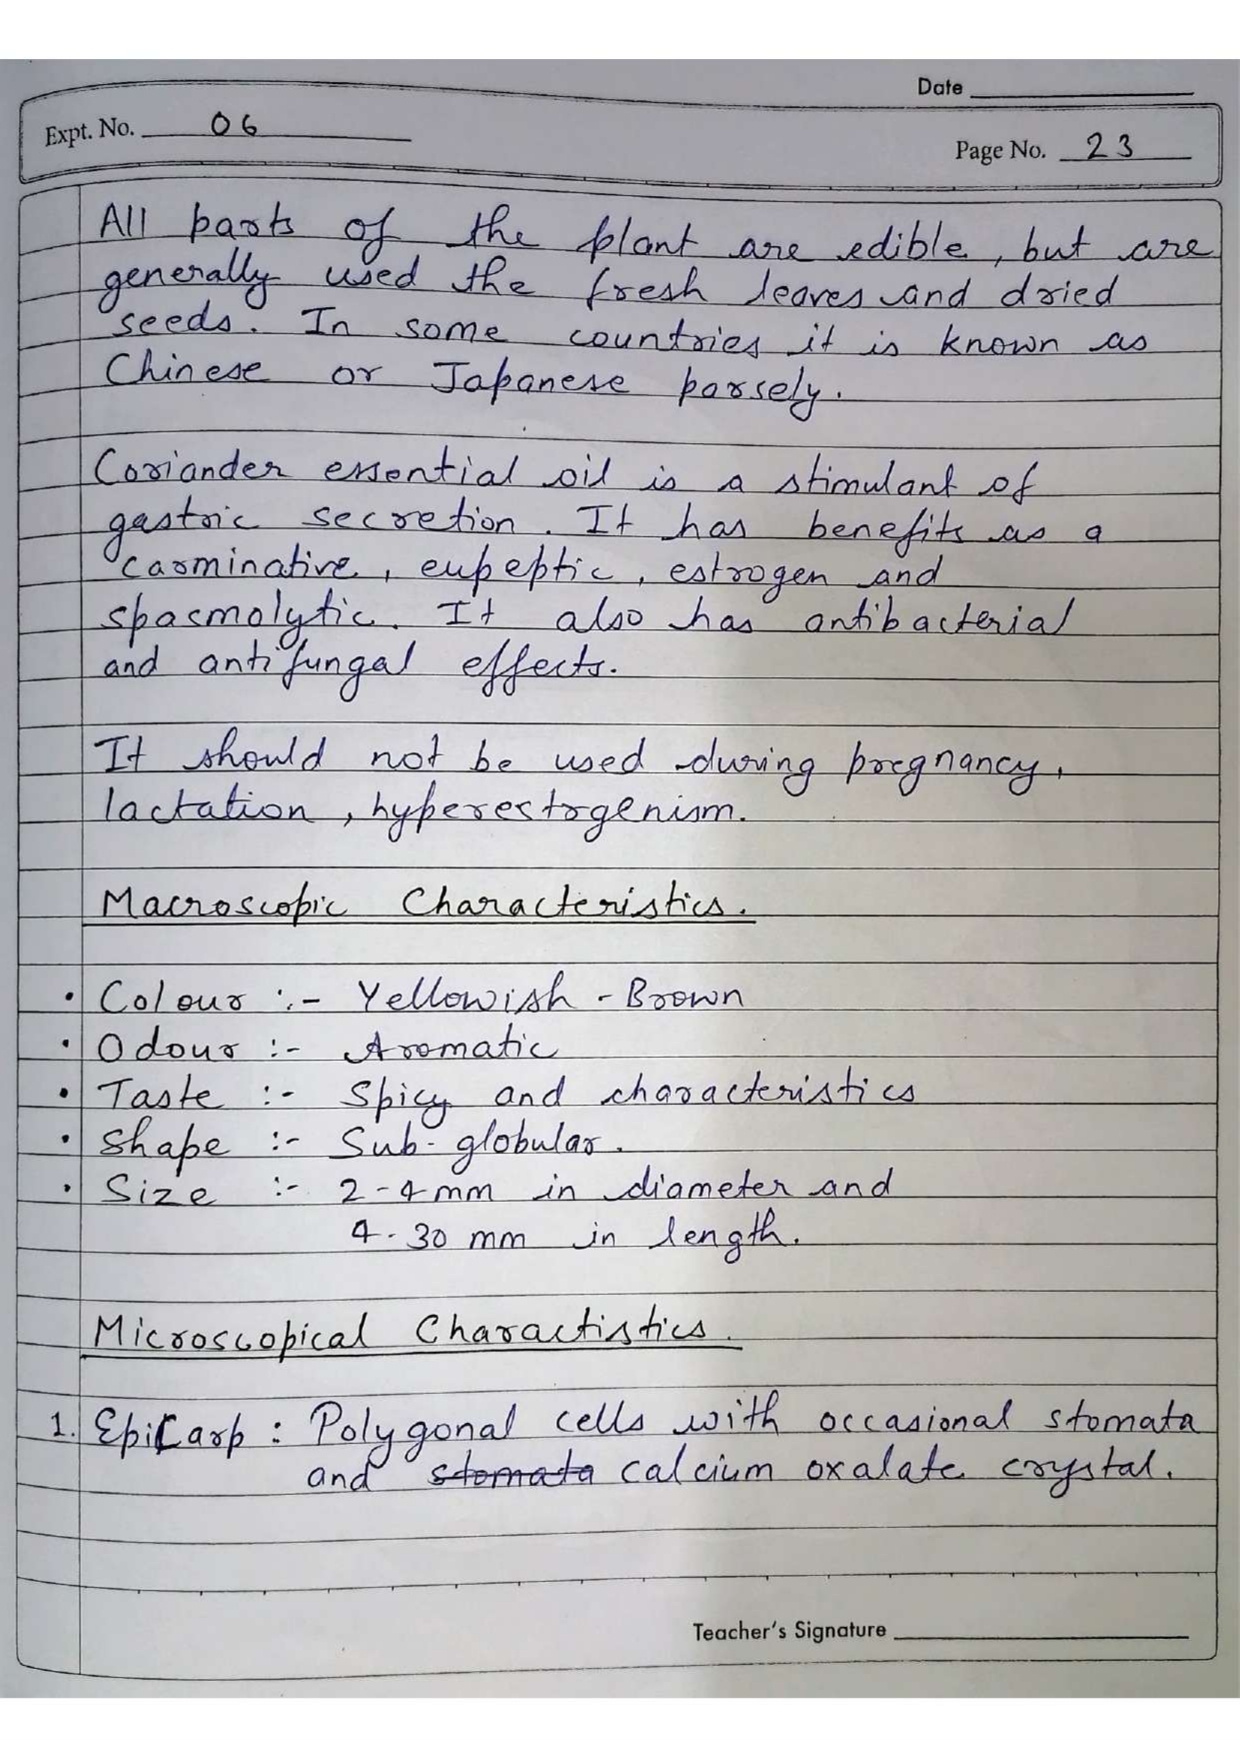 Date
Expt. No. 06
Page No. 23
All parts of the plant are edible, but are
generally used the fresh leaves and dried
seeds. In some countries it is known as
Chinese or Japanese parsely.
Coriander essential oil is a stimulant of
gastric secretion. It has benefits as a
carminative, eupeptic, estrogen and
spasmolytic. It also has antibacterial
and antifungal effects.
It should not be used during pregnancy,
lactation, hyperestrogenism.
Macroscopic Characteristics.
• Colour :- Yellowish - Brown
• Odour :- Aromatic
• Taste :- Spicy and characteristics
• Shape :- Sub-globular.
• Size :- 2-4 mm in diameter and
4-30 mm in length.
Microscopical Charactistics.
1. Epicarp : Polygonal cells with occasional stomata
and stomata calcium oxalate crystal.
Teacher's Signature